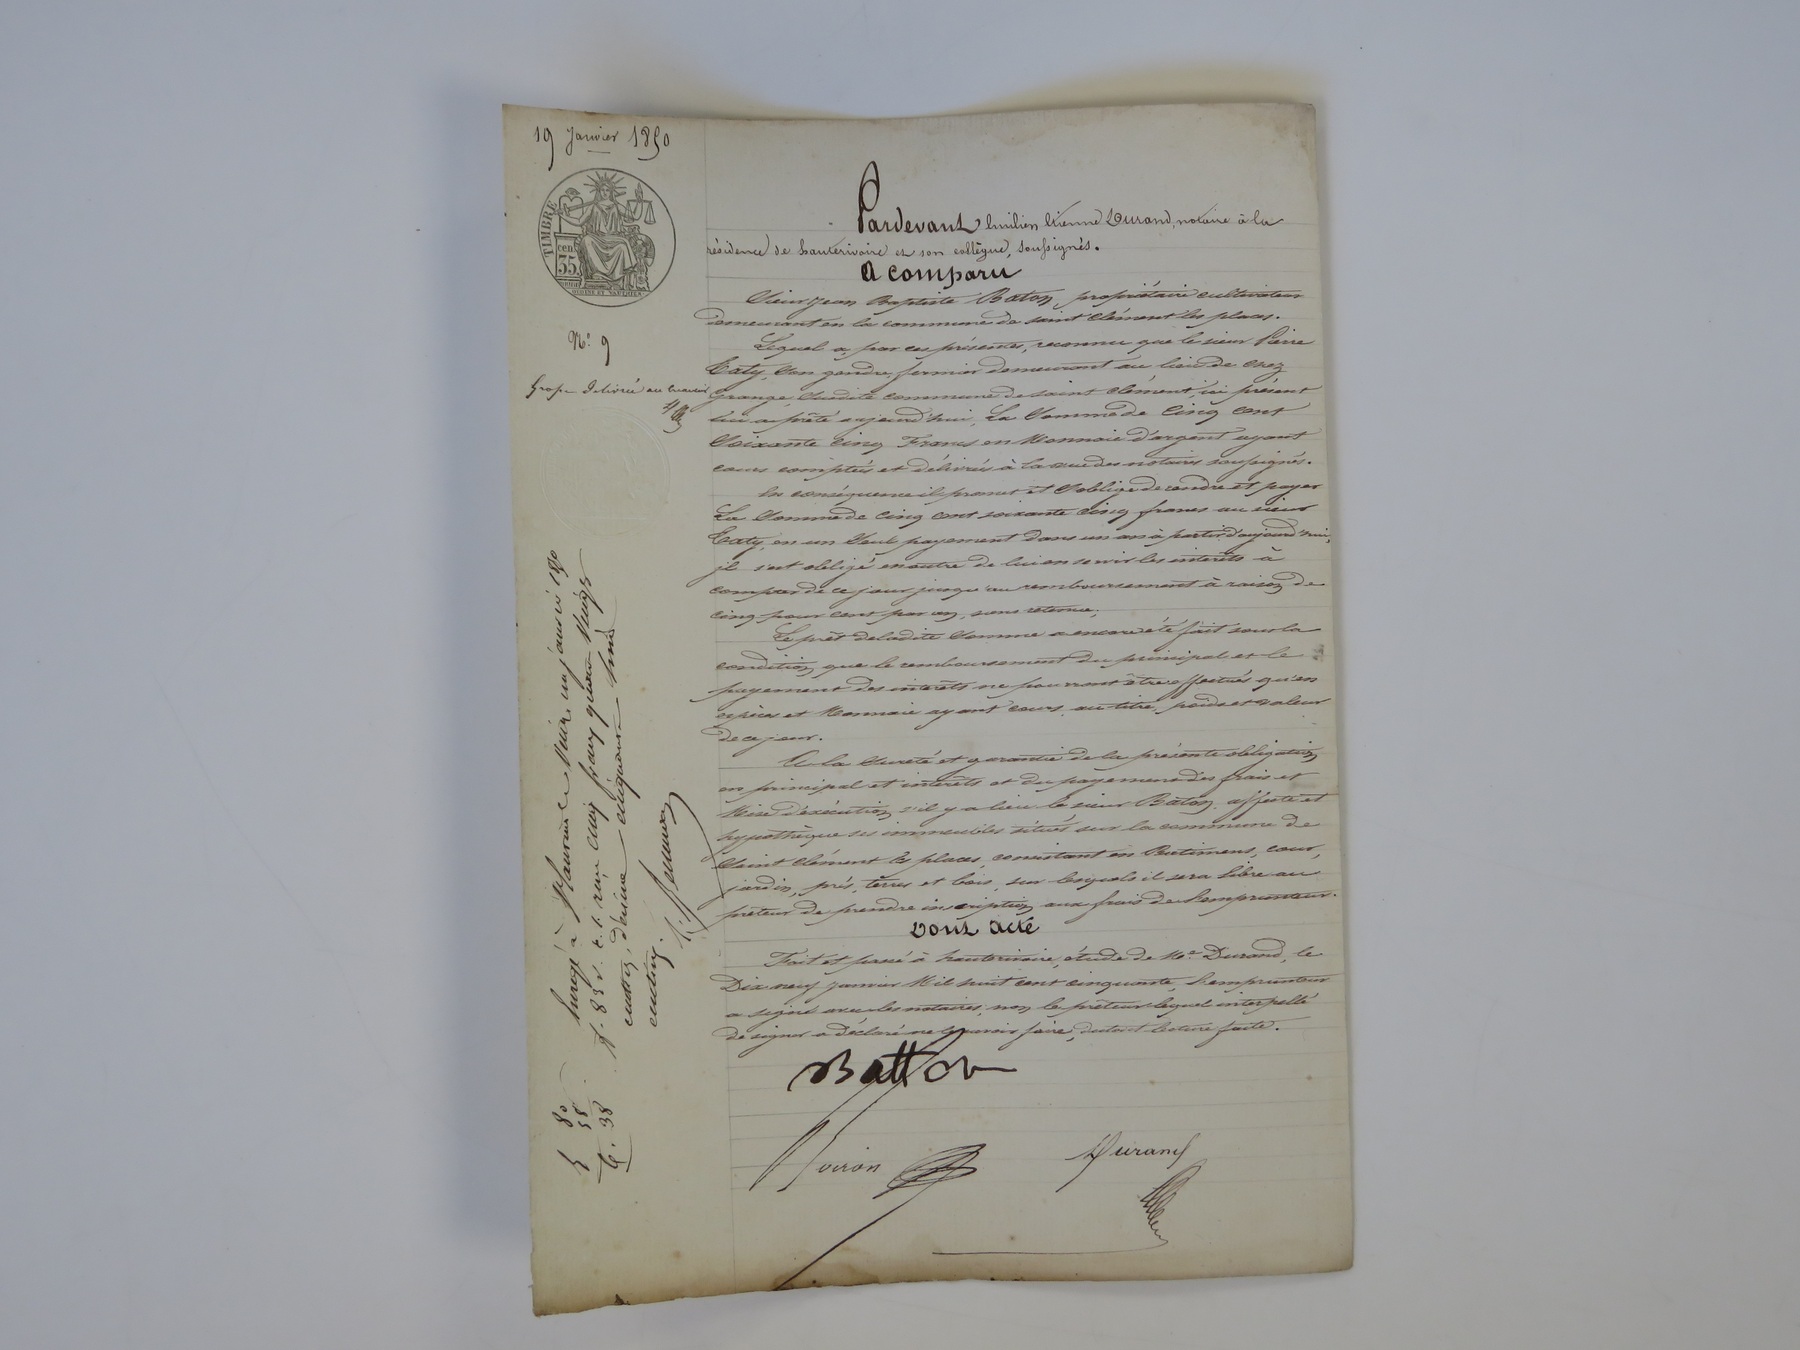 19 Janvier 1850
TIMBRE
cent
35
Nº 9
Grosse délivrée au
Pardevant Etienne Durand, notaire à la
résidence de hauterivoire et son collègue, soussignés.
A comparu
Sieur Jean Baptiste Baton, propriétaire cultivateur
demeurant en la commune de Saint Clément les places.
Lequel a, par ces présentes, reconnu que le sieur Pierre
son gendre, fermier demeurant au lieu de chez
grange, susdite commune de Saint Clément, ici présent
lui a prêté aujourd'hui, La Somme de Cinq Cent
Soixante Cinq Francs en Monnaie d'argent ayant
cours comptés et délivrés à la vue des notaires soussignés.
En conséquence il promet et s'oblige de rendre et payer
La Somme de cinq cent soixante cinq francs au sieur
en un Seul payement dans un an à partir d'aujourd'hui,
il s'est obligé en outre de lui en servir les intérêts à
compter de ce jour jusqu'au remboursement à raison de
cinq pour cent par an, sans retenue.
Le prêt de ladite Somme a encore été fait sous la
condition, que le remboursement du principal et le
payement des intérêts ne pourront être effectués qu'en
espèces et Monnaie ayant cours au titre, poids et valeur
de ce jour.
A la Sureté et garantie de la présente obligation
en principal et intérêts et du payement des frais et
Mise d'exécution, s'il y a lieu le sieur Bâton, affecte et
hypothèque ses immeubles situés sur la commune de
Saint Clément les places, consistant en Batimens, cour,
jardin, prés, terres et bois, sur lesquels il sera libre au
prêteur de prendre inscription, aux frais de l'emprunteur.
Dont Acte
Fait et passé à hauterivoire, étude de Me Durand, le
Dix neuf janvier Mil huit cent cinquante, L'emprunteur
a signé avec les notaires, non le prêteur lequel interpellé
de signer a déclaré ne le savoir faire, du tout lecture faite.
Batton
Voiron
Durand
Enregé à St Laurent de le vingt un janvier 1850
fo 83 v. c. 1. reçu cinq francs quatre vingts
centimes, décime cinquante huit
centimes.
5 80
58
6. 38